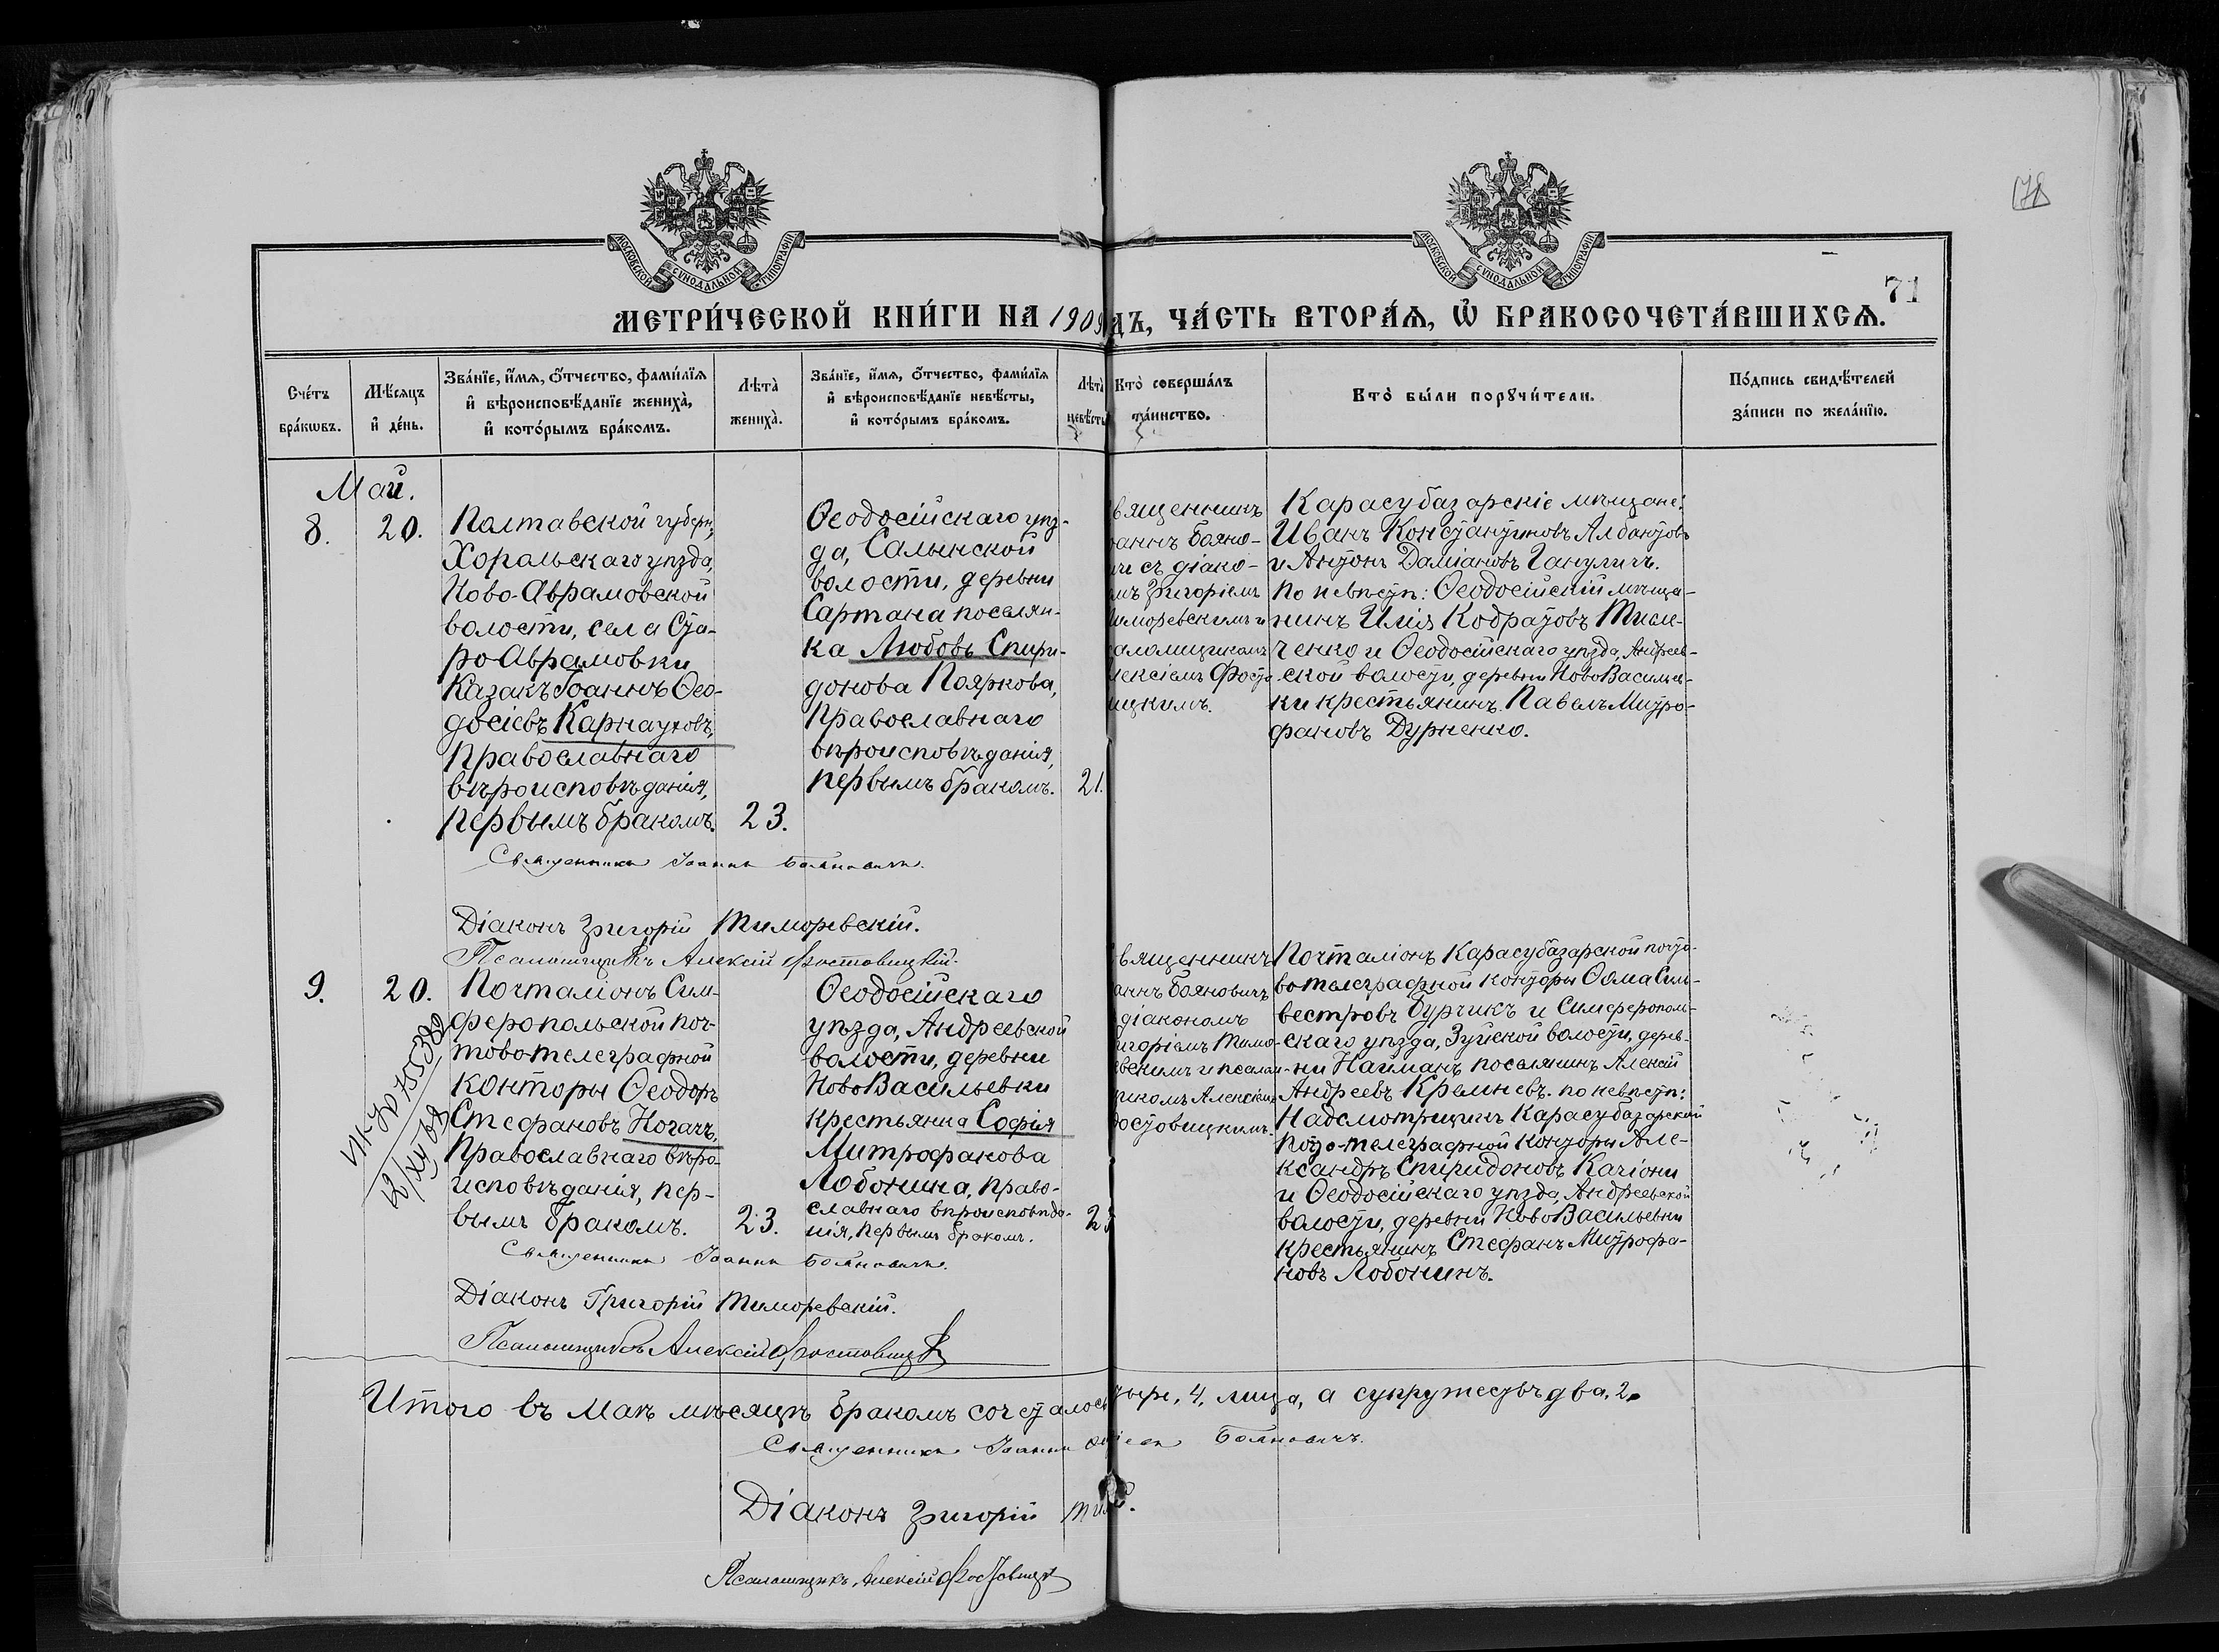 МОСКОВСКОЙ СѴНОДАЛЬНОЙ ТИПОГРАФІИ
МОСКОВСКОЙ СѴНОДАЛЬНОЙ ТИПОГРАФІИ
71
МЕТРИ́ЧЕСКОЙ КНИ́ГИ НА 1909 ДЪ, ЧА́СТЬ ВТОРА́Ѧ, Ѡ҆ БРАКОСОЧЕТА́ВШИХСѦ.
Сче́тъ бра́кѡвъ.
Мѣ́сяцъ и҆ де́нь.
Зва́нїе, и҆́мѧ, ѻ҆́тчество, фами́лїѧ
и҆ вѣроисповѣ́данїе жениха̀,
и҆ кото́рымъ бра́комъ.
Лѣта̀ жениха̀.
Зва́нїе, и҆́мѧ, ѻ҆́тчество, фами́лїѧ
и҆ вѣроисповѣ́данїе невѣ́сты,
и҆ кото́рымъ бра́комъ.
Лѣта̀ невѣ́сты
Кто̀ соверша́лъ
та́инство.
Кто̀ бы́ли порꙋчи́тели.
По́дпись свидѣ́телей
за́писи по жела́нїю.
Май.
8.
20.
Полтавской губерн.,
Хорольскаго уѣзда,
Ново-Аврамовской
волости, села Ста-
ро Аврамовки
Казакъ Іоаннъ Ѳео-
досіевъ Карнауховъ,
Православнаго
вѣроисповѣданія,
первымъ бракомъ.
23.
Ѳеодосійскаго уѣз-
да, Салынской
волости, деревни
Сартана поселян-
ка Любовь Спири-
донова Пояркова,
Православнаго
вѣроисповѣданія,
первымъ бракомъ.
21.
вященникъ
оаннъ Бояно-
чи съ діако-
мъ Григоріемъ
иморевскимъ и
саломщикомъ
лексіемъ Фосто-
ицкимъ.
Карасубазарскіе мѣщане:
Иванъ Константиновъ Албантовъ
и Антонъ Даміановъ Гануличъ.
По невѣстѣ: Ѳеодосійскій мѣща-
нинъ Илія Кодратовъ Тисле-
ченко и Ѳеодосійскаго уѣзда, Андреев-
ской волости, деревни НовоВасильев-
ки крестьянинъ Павелъ Митро-
фановъ Дурненко.
Священникъ Іоаннъ Бояновичъ.
Діаконъ Григорій Тиморевскій.
Псаломщикъ Алексій Фостовицкій.
9.
20.
Почталіонъ Сим-
феропольской поч-
тово-телеграфной
конторы Ѳеодоръ
Стефановъ Ногачъ,
Православнаго вѣро-
исповѣданія, пер-
вымъ бракомъ.
23.
Ѳеодосійскаго
уѣзда, Андреевской
волости, деревни
НовоВасильевки
крестьянка Софія
Митрофанова
Лобонина, право-
славнаго вѣроисповѣда-
нія, первымъ бракомъ.
вященникъ
аннъ Бояновичъ
діакономъ
игоріемъ Тимо-
евскимъ и псалом-
щикомъ Алексіемъ
остовицкимъ.
Почталіонъ Карасубазарской почто-
вотелеграфной конторы Ѳома Силь-
вестровъ Бурчикъ и Симферополь-
скаго уѣзда, Зуйской волости, дерев-
ни Найманъ поселянинъ Алексій
Андреевъ Кремневъ. по невѣстѣ:
Надсмотрщикъ Карасубазарской
почто-телеграфной конторы Але-
ксандръ Спиридоновъ Качіони
и Ѳеодосійскаго уѣзда, Андреевской
волости, деревни НовоВасильевки
крестьянинъ Стефанъ Митрофа-
новъ Лобонинъ.
Священникъ Іоаннъ Бояновичъ.
Діаконъ Григорій Тиморевскій.
Псаломщикъ Алексій Фостовицк
Итого въ Маѣ мѣсяцѣ бракомъ сочеталось тыре, 4, лица, а супружествъ два, 2.
Священникъ Іоаннъ Бояновичъ.
Діаконъ Григорій Тим
Псаломщикъ, Алексій Фостовицк